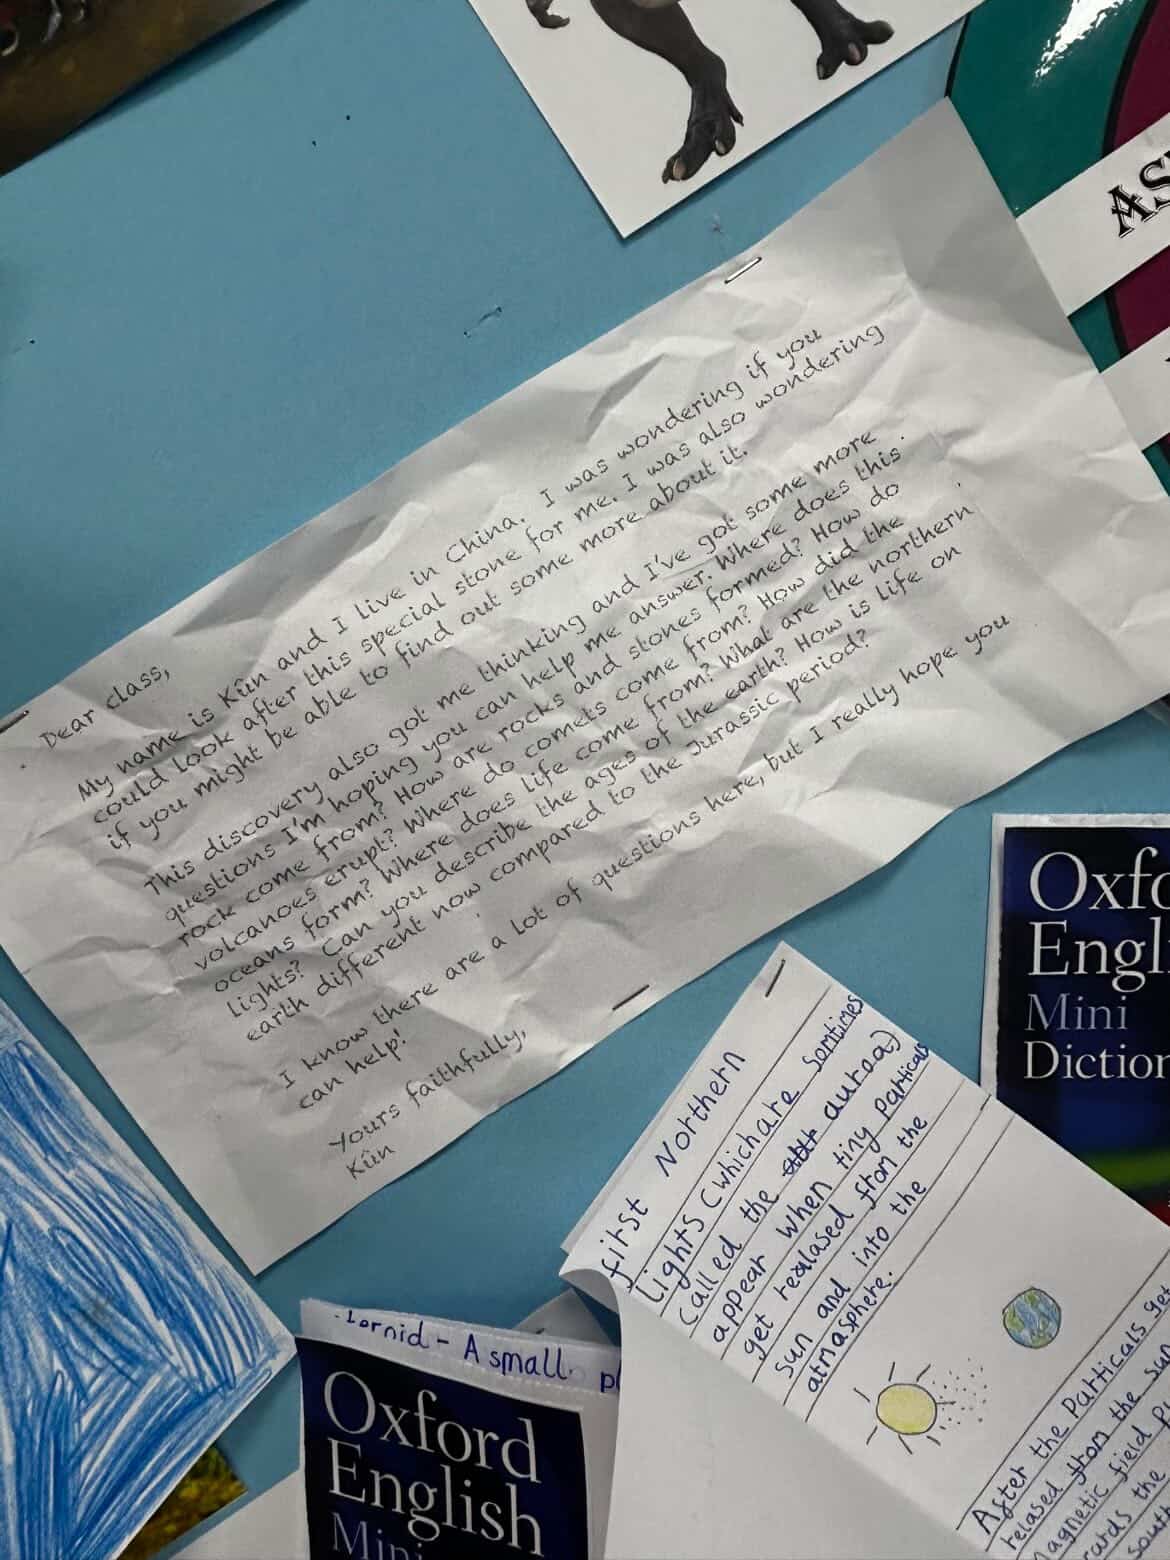 AS
Dear class,
My name is Kûn and I live in China. I was wondering if you
could look after this special stone for me. I was also wondering
if you might be able to find out some more about it.
This discovery also got me thinking and I've got some more
questions I'm hoping you can help me answer. Where does this
rock come from? How are rocks and stones formed? How do
volcanoes erupt? Where do comets come from? How did the
oceans form? Where does life come from? What are the northern
lights? Can you describe the ages of the earth? How is life on
earth different now compared to the Jurassic period?
I know there are a lot of questions here, but I really hope you
can help!
Yours faithfully,
Kûn
Oxfo
Engl
Mini
Diction
first Northern
Lights (which are Somtimes
called the auraa)
appear when tiny particals
get realased from the
sun and into the
atmasphere.
After the Particals get
relased from the sun
Magnetic field
the
south
- A small
Oxford
English
Mini